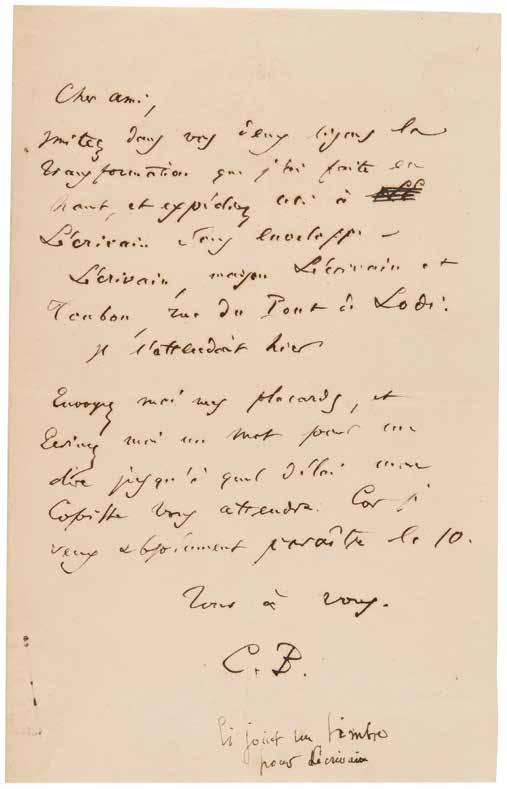 Cher ami,
imitez dans vos deux lignes la
transformation que j'ai faite en
haut, et expédiez ceci à
Lécrivain sous enveloppe –
Lécrivain, maison Lécrivain et
Toubon, rue du Pont de Lodi.
Je l'attendais hier
Envoyez moi mes placards, et
Écrivez moi un mot pour me
dire jusqu'à quel délai mon
Copiste vous attendra. Car je
veux absolument paraître le 10.
Tout à vous.
C. B.
Ci joint un timbre
pour Lécrivain